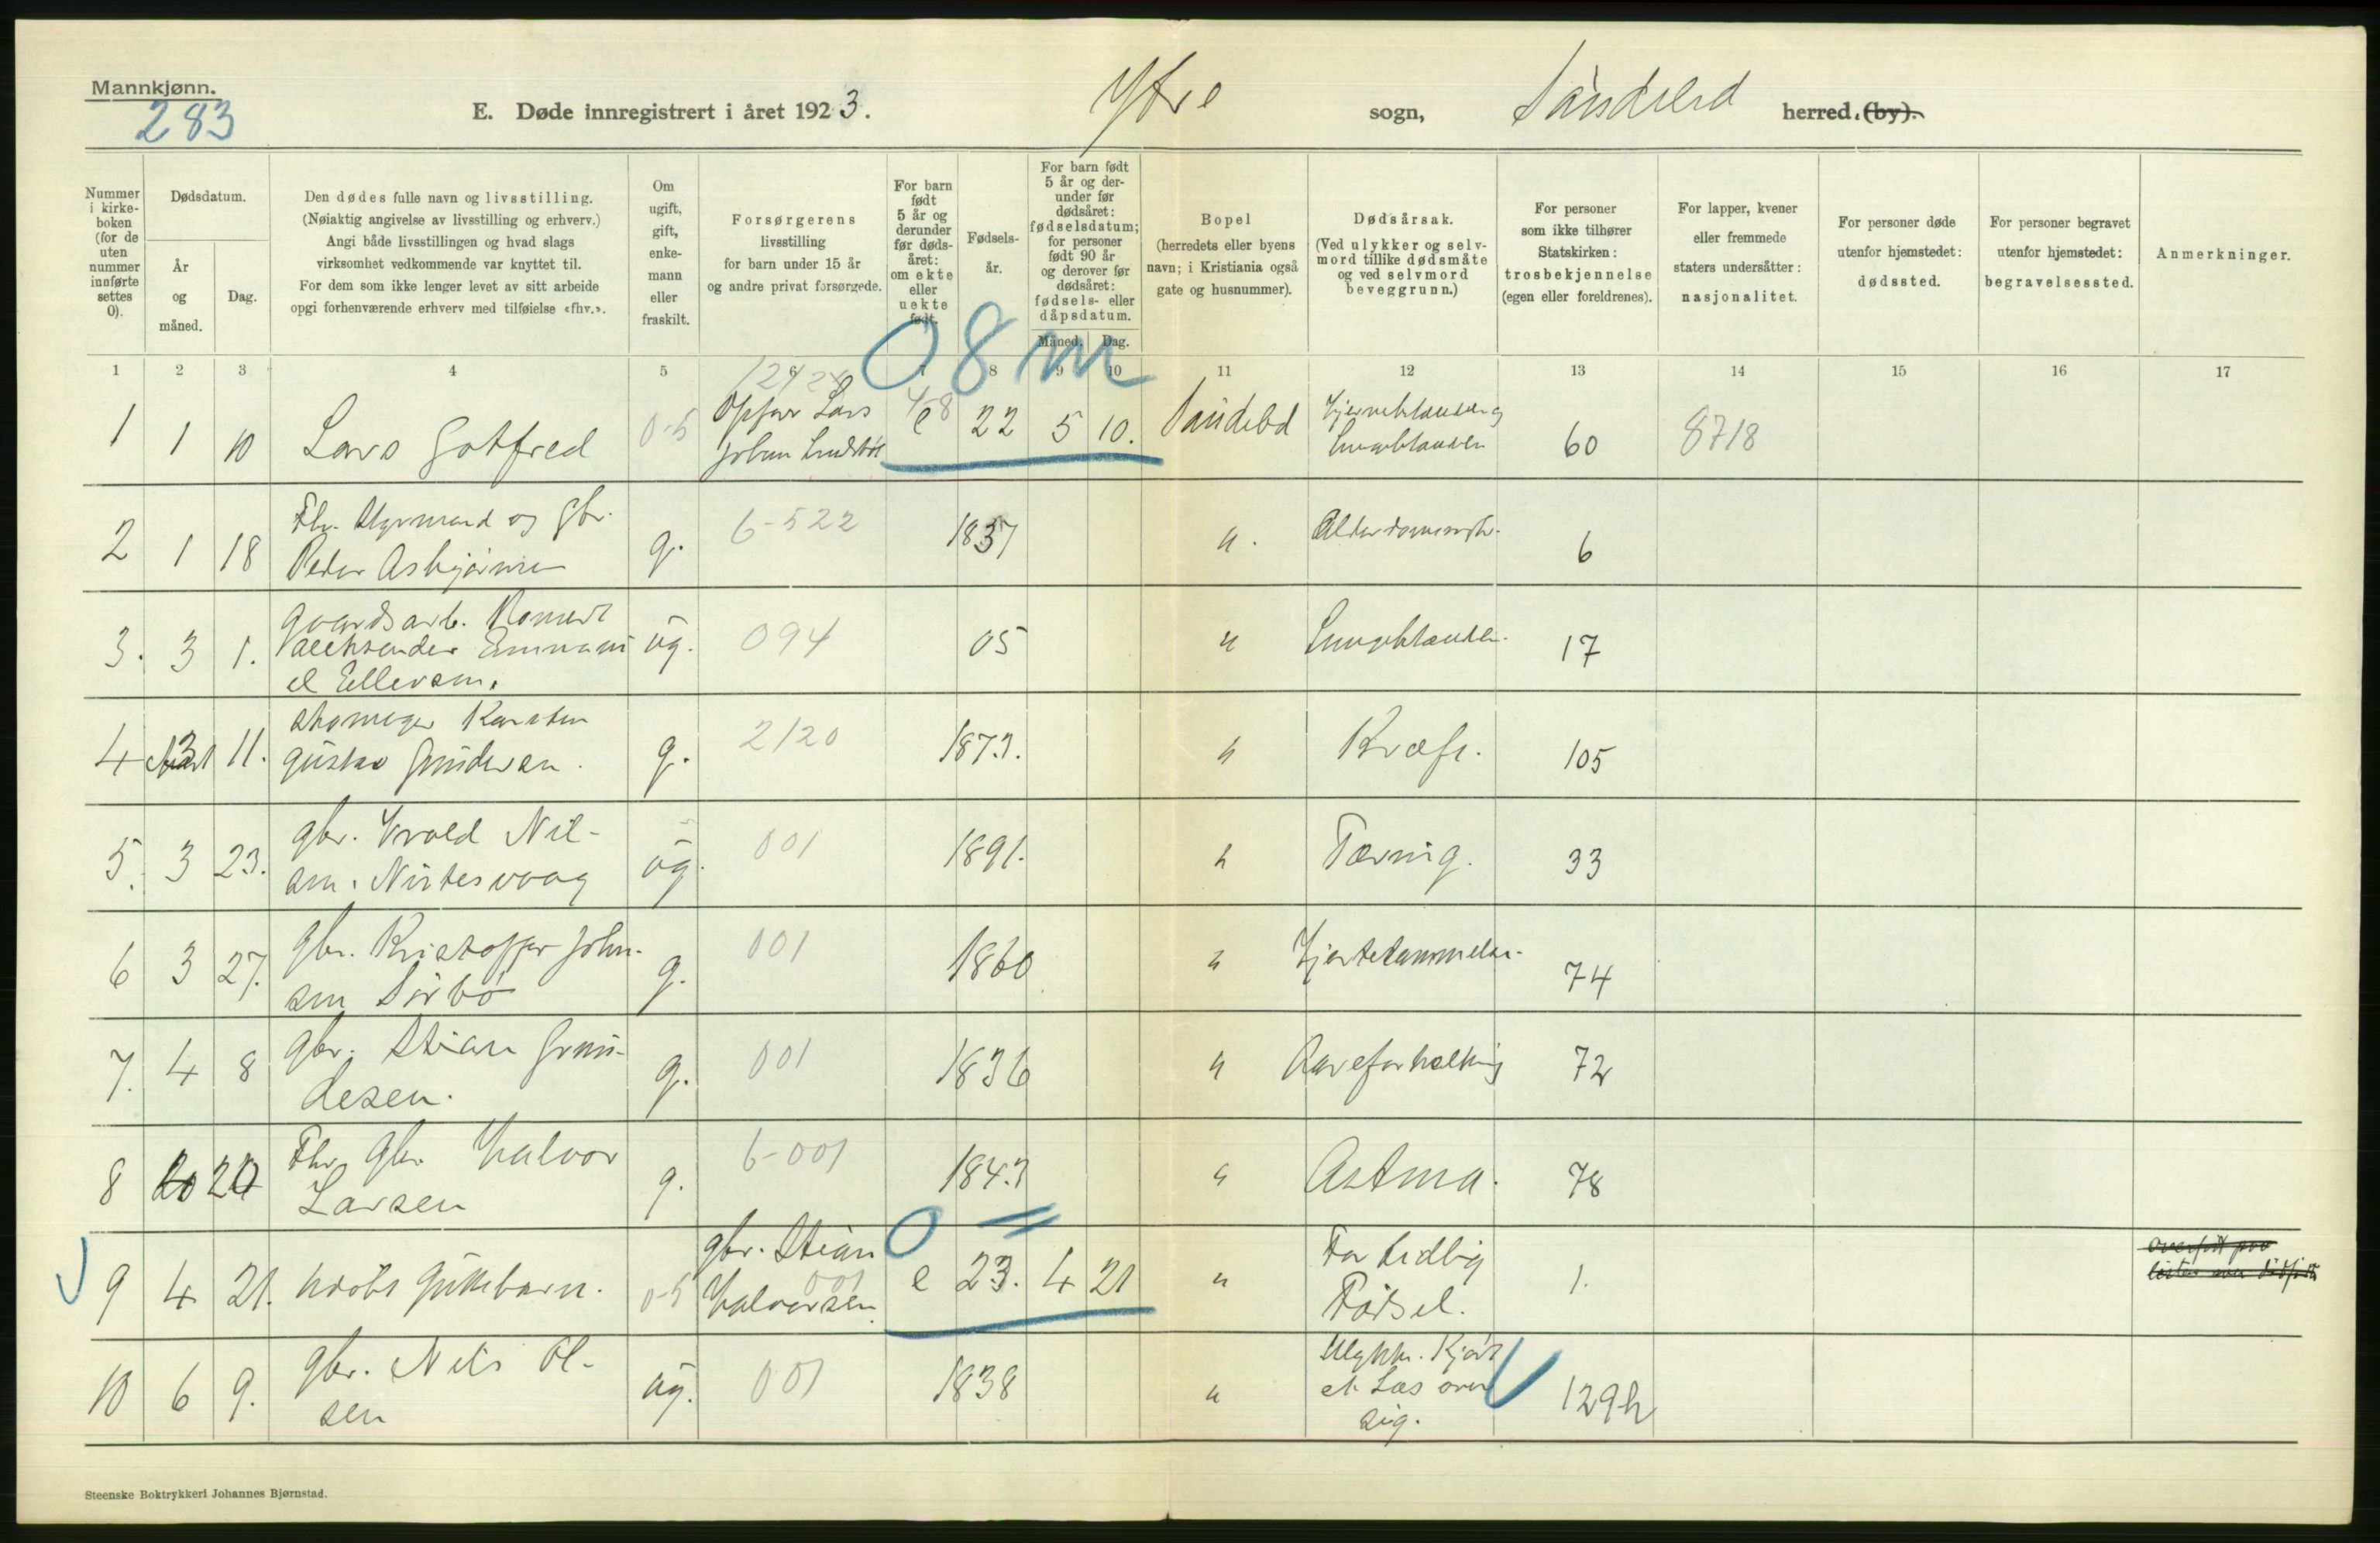 Mannkjønn.
283
E. Døde innregistrert i året 1923.
Ytre sogn, Sandeherred herred. (by).
Nummer i kirkeboken (for de uten nummer innførte settes 0).
Dødsdatum.
År og måned.
Dag.
Den dødes fulle navn og livsstilling.
(Nøiaktig angivelse av livsstilling og erhverv.)
Angi både livsstillingen og hvad slags
virksomhet vedkommende var knyttet til.
For dem som ikke lenger levet av sitt arbeide
opgi forhenværende erhverv med tilføielse «fhv.».
Om ugift, gift, enkemann eller fraskilt.
Forsørgerens
livsstilling
for barn under 15 år
og andre privat forsørgede.
For barn født 5 år og derunder før dødsåret: om ekte eller uekte født.
Fødselsår.
For barn født 5 år og derunder før dødsåret: fødselsdatum; for personer født 90 år og derover før dødsåret: fødsels- eller dåpsdatum.
Måned. Dag.
Bopel
(herredets eller byens
navn; i Kristiania også
gate og husnummer).
Dødsårsak.
(Ved ulykker og selvmord tillike dødsmåte og ved selvmord beveggrunn.)
For personer
som ikke tilhører
Statskirken:
trosbekjennelse
(egen eller foreldrenes).
For lapper, kvener
eller fremmede
staters undersåtter:
nasjonalitet.
For personer døde
utenfor hjemstedet:
dødssted.
For personer begravet
utenfor hjemstedet:
begravelsessted.
Anmerkninger.
08 m
1 2 3 4 5 6 7 8 9 10 11 12 13 14 15 16 17
1 1 10 Lars Gotfred 0-5 Lars Johan e 22 5 10. 60 8718
2 1 18 Fhv. Styrmand og gbr.
Peder Asbjørnsen g. 6-522 1837 " . 6
3. 3 1. gaardsarb.
Ellevsen. ug. 094 05 " 17
4 3 11. Karsten
Gustav g. 2120 1873. " Kræft. 105
5. 3 23. gbr. Nil-
sen. ug. 001 1891. " Tæring. 33
6 3 27. gbr. Kristoffer John-
sen Sörbö g. 001 1860 " Hjertelammelse. 74
7. 4 8 gbr. Stian
g. 001 1836 " Aareforkalkning 72
8 20 Fhv. gbr. Halvor
Larsen g. 6-001 1843 " Astma. 78
9 4 21. udöbt Guttebarn. 0-5 gbr. Stian
Halvorsen 001 e 23. 4 21 " For tidlig
Födsel. 1.
10 6 9. gbr. Nils Ol-
sen ug. 001 1838 " Ulykke. Kjørt
et Læs over
sig. 129h
Steenske Boktrykkeri Johannes Bjørnstad.